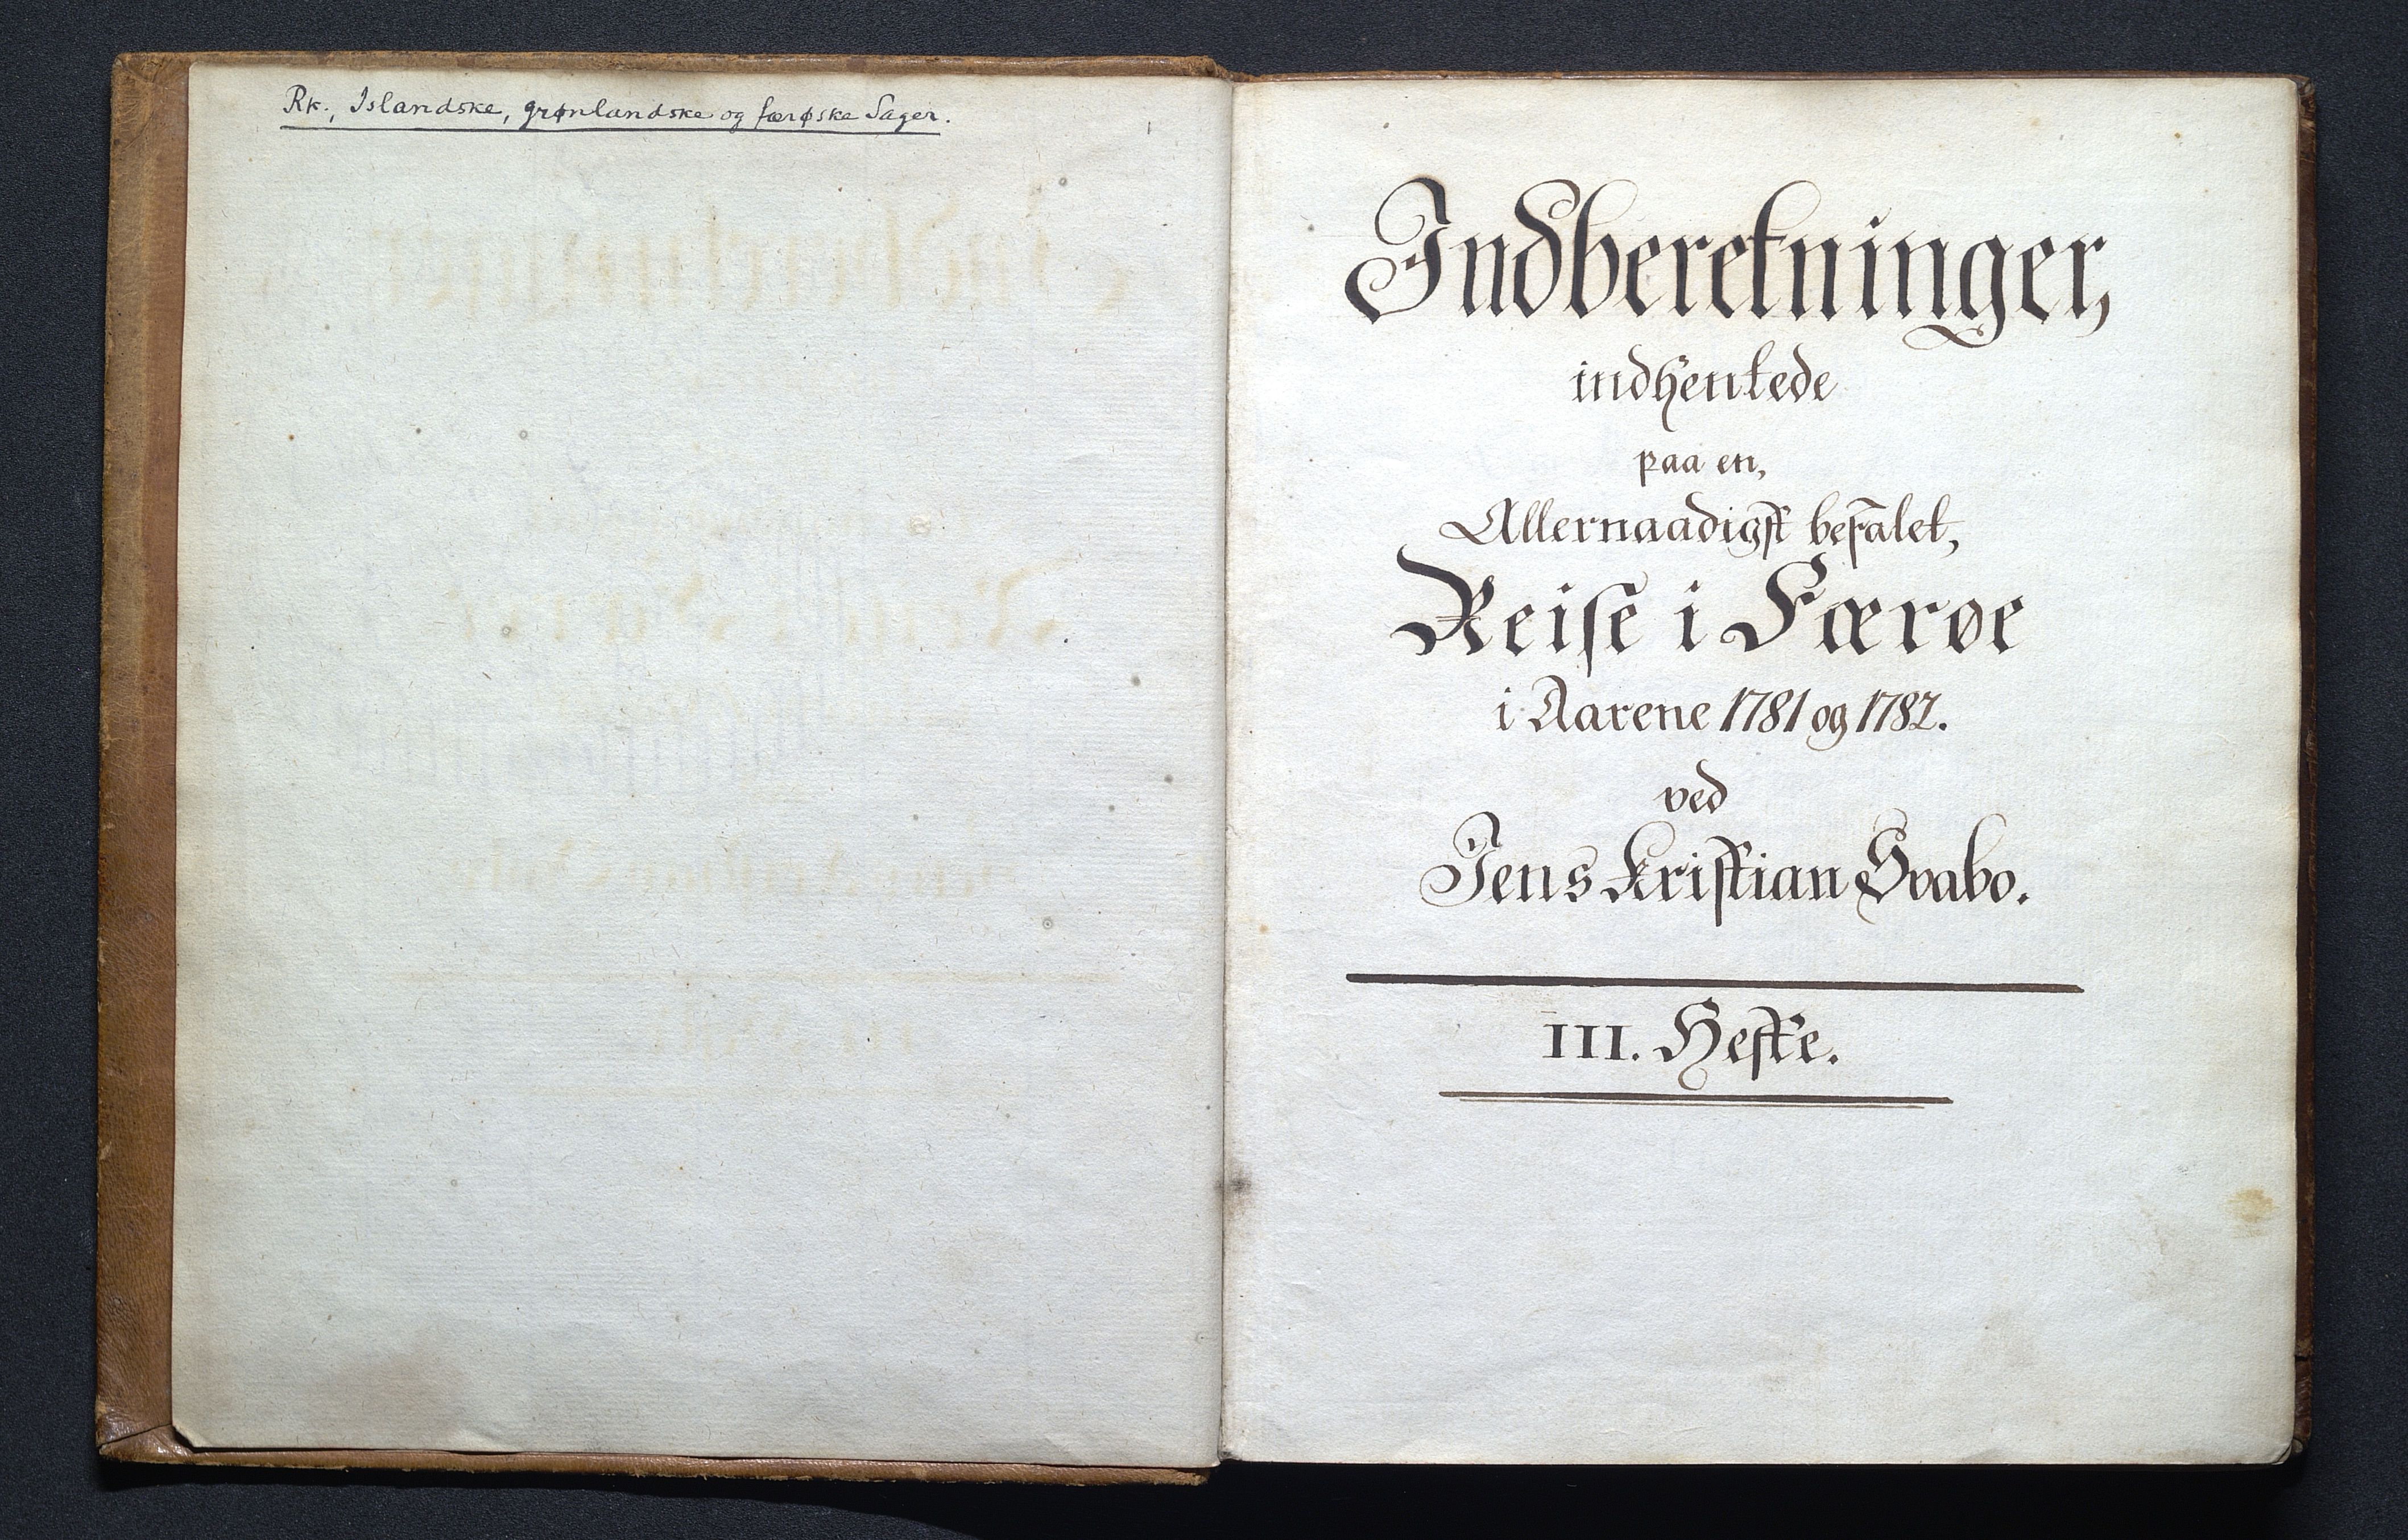 Rk., Islandske, grønlandske og færøske Sager.
Indberetninger,
indhentede
paa en,
Allernaadigst befalet,
Reise i Færøe
i Aarene 1781 og 1782.
ved
Jens Kristian Svabo.
III. Hefte.